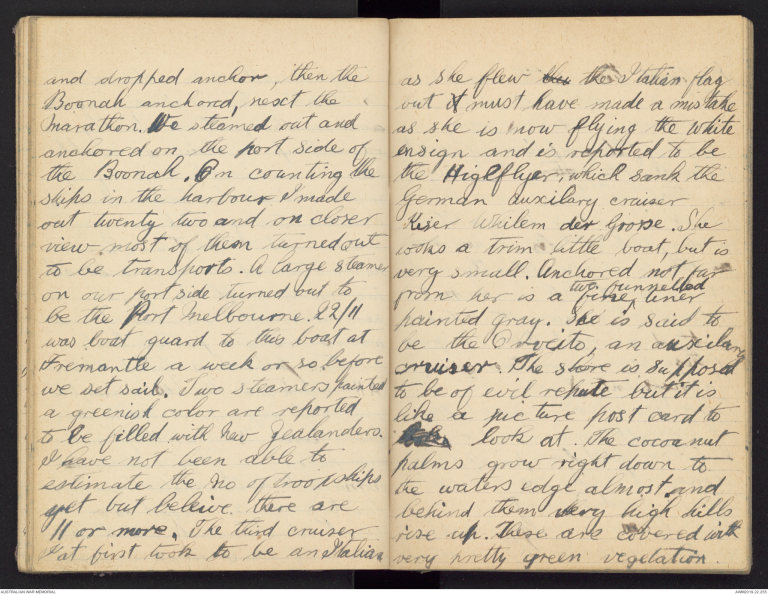 and dropped anchor, then the
Boonah anchored, nesct the
Marathon. We steamed out and
anchored on the port side of
the Boonah. On counting the
ships in the harbour I made
out twenty two and on closer
view most of them turned out
to be transports. A large steamer
on our port side turned out to
be the Port Melbourne. 22/11
was boat guard to this boat at
Fremantle a week or so before
we set sail. Two steamers painted
a greenish color are reported
to be filled with New Zealanders.
I have not been able to
estimate the no of troopships
yet but beleive there are
11 or more. The third cruiser
I at first took to be an Italian
as she flew the Italian flag
but it must have made a mistake
as she is now flying the white
ensign and is reported to be
the Highflyer, which sank the
German auxilary cruiser
Kiser Whilem der Grosse. She
looks a trim little boat, but is
very small. Anchored not far
two funnelled
from her is a fine, liner
painted gray. She is said to
be the Orvieto, an auxilary
cruiser. The shore is supposed
to be of evil repute but it is
like a picture post card to
look at. The cocoanut
palms grow right down to
the waters edge almost and
behind them very high hills
rise up. These are covered with
very pretty green vegetation.
AUSTRALIAN WAR MEMORIAL